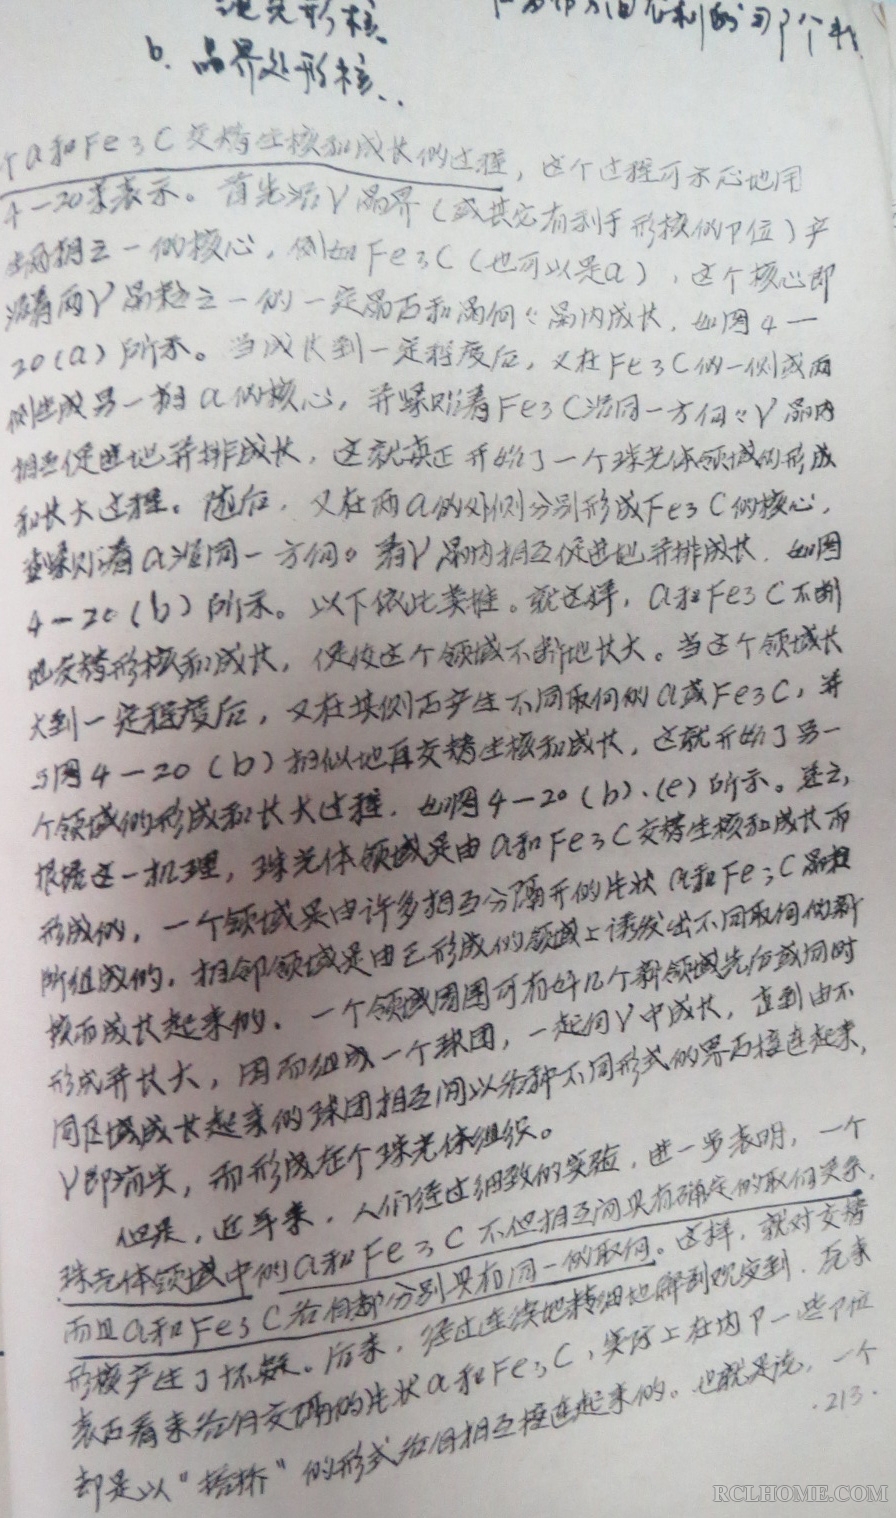 混先形核
b. 晶界处形核..
个a和Fe3C交替生核和成长的过程，这个过程可示意地用
4-20来表示。首先沿γ晶界（或其它有利于形核的P位）产
生两相之一的核心，例如Fe3C（也可以是a），这个核心即
沿着两γ晶粒之一的一定晶面和晶向〃晶内成长，如图4-
20(a)所示。当成长到一定程度后，又在Fe3C的一侧或两
侧生成另一相a的核心，并紧贴着Fe3C沿同一方向〃γ晶内
相互促进地并排成长，这就真正开始了一个珠光体领域的形成
和长大过程。随后，又在两a的外侧分别形成Fe3C的核心，
并紧贴着a沿同一方向。着γ晶内相互促进地并排成长．如图
4-20(b)所示。以下依此类推。就这样，a和Fe3C不断
地交替形核和成长，促使这个领域不断地长大。当这个领域长
大到一定程度后，又在其侧面产生不同取向的a或Fe3C，并
与图4-20(b)相似地再交替生核和成长，这就开始了另一
个领域的形成和长大过程．如图4-20(b)·(e)所示。总之，
根据这一机理，珠光体领域是由a和Fe3C交替生核和成长而
形成的，一个领域是由许多相互分隔开的片状a和Fe3C晶粒
所组成的，相邻领域是由已形成的领域上诱发出不同取向的新
核而成长起来的，一个领域周围可有好几个新领域先后或同时
形成并长大，因而组成一个球团，一起向γ中成长，直到由不
同区域成长起来的球团相互间以各种不同形式的界面接连起来，
γ即消失，而形成在个珠光体组织。
但是，近年来，人们经过细致的实验，进一步表明，一个
珠光体领域中的a和Fe3C不但相互间具有确定的取向关系，
而且a和Fe3C各自都分别具有同一的取向。这样，就对交替
形核产生了怀疑。后来，经过连续地精细地解剖观察到．原来
表面看来各自交隔的片状a和Fe3C，实际上在内P一些P位
却是以“搭桥”的形式各自相互接连起来的。也就是说，一个
·213·
RCLHOME.COM